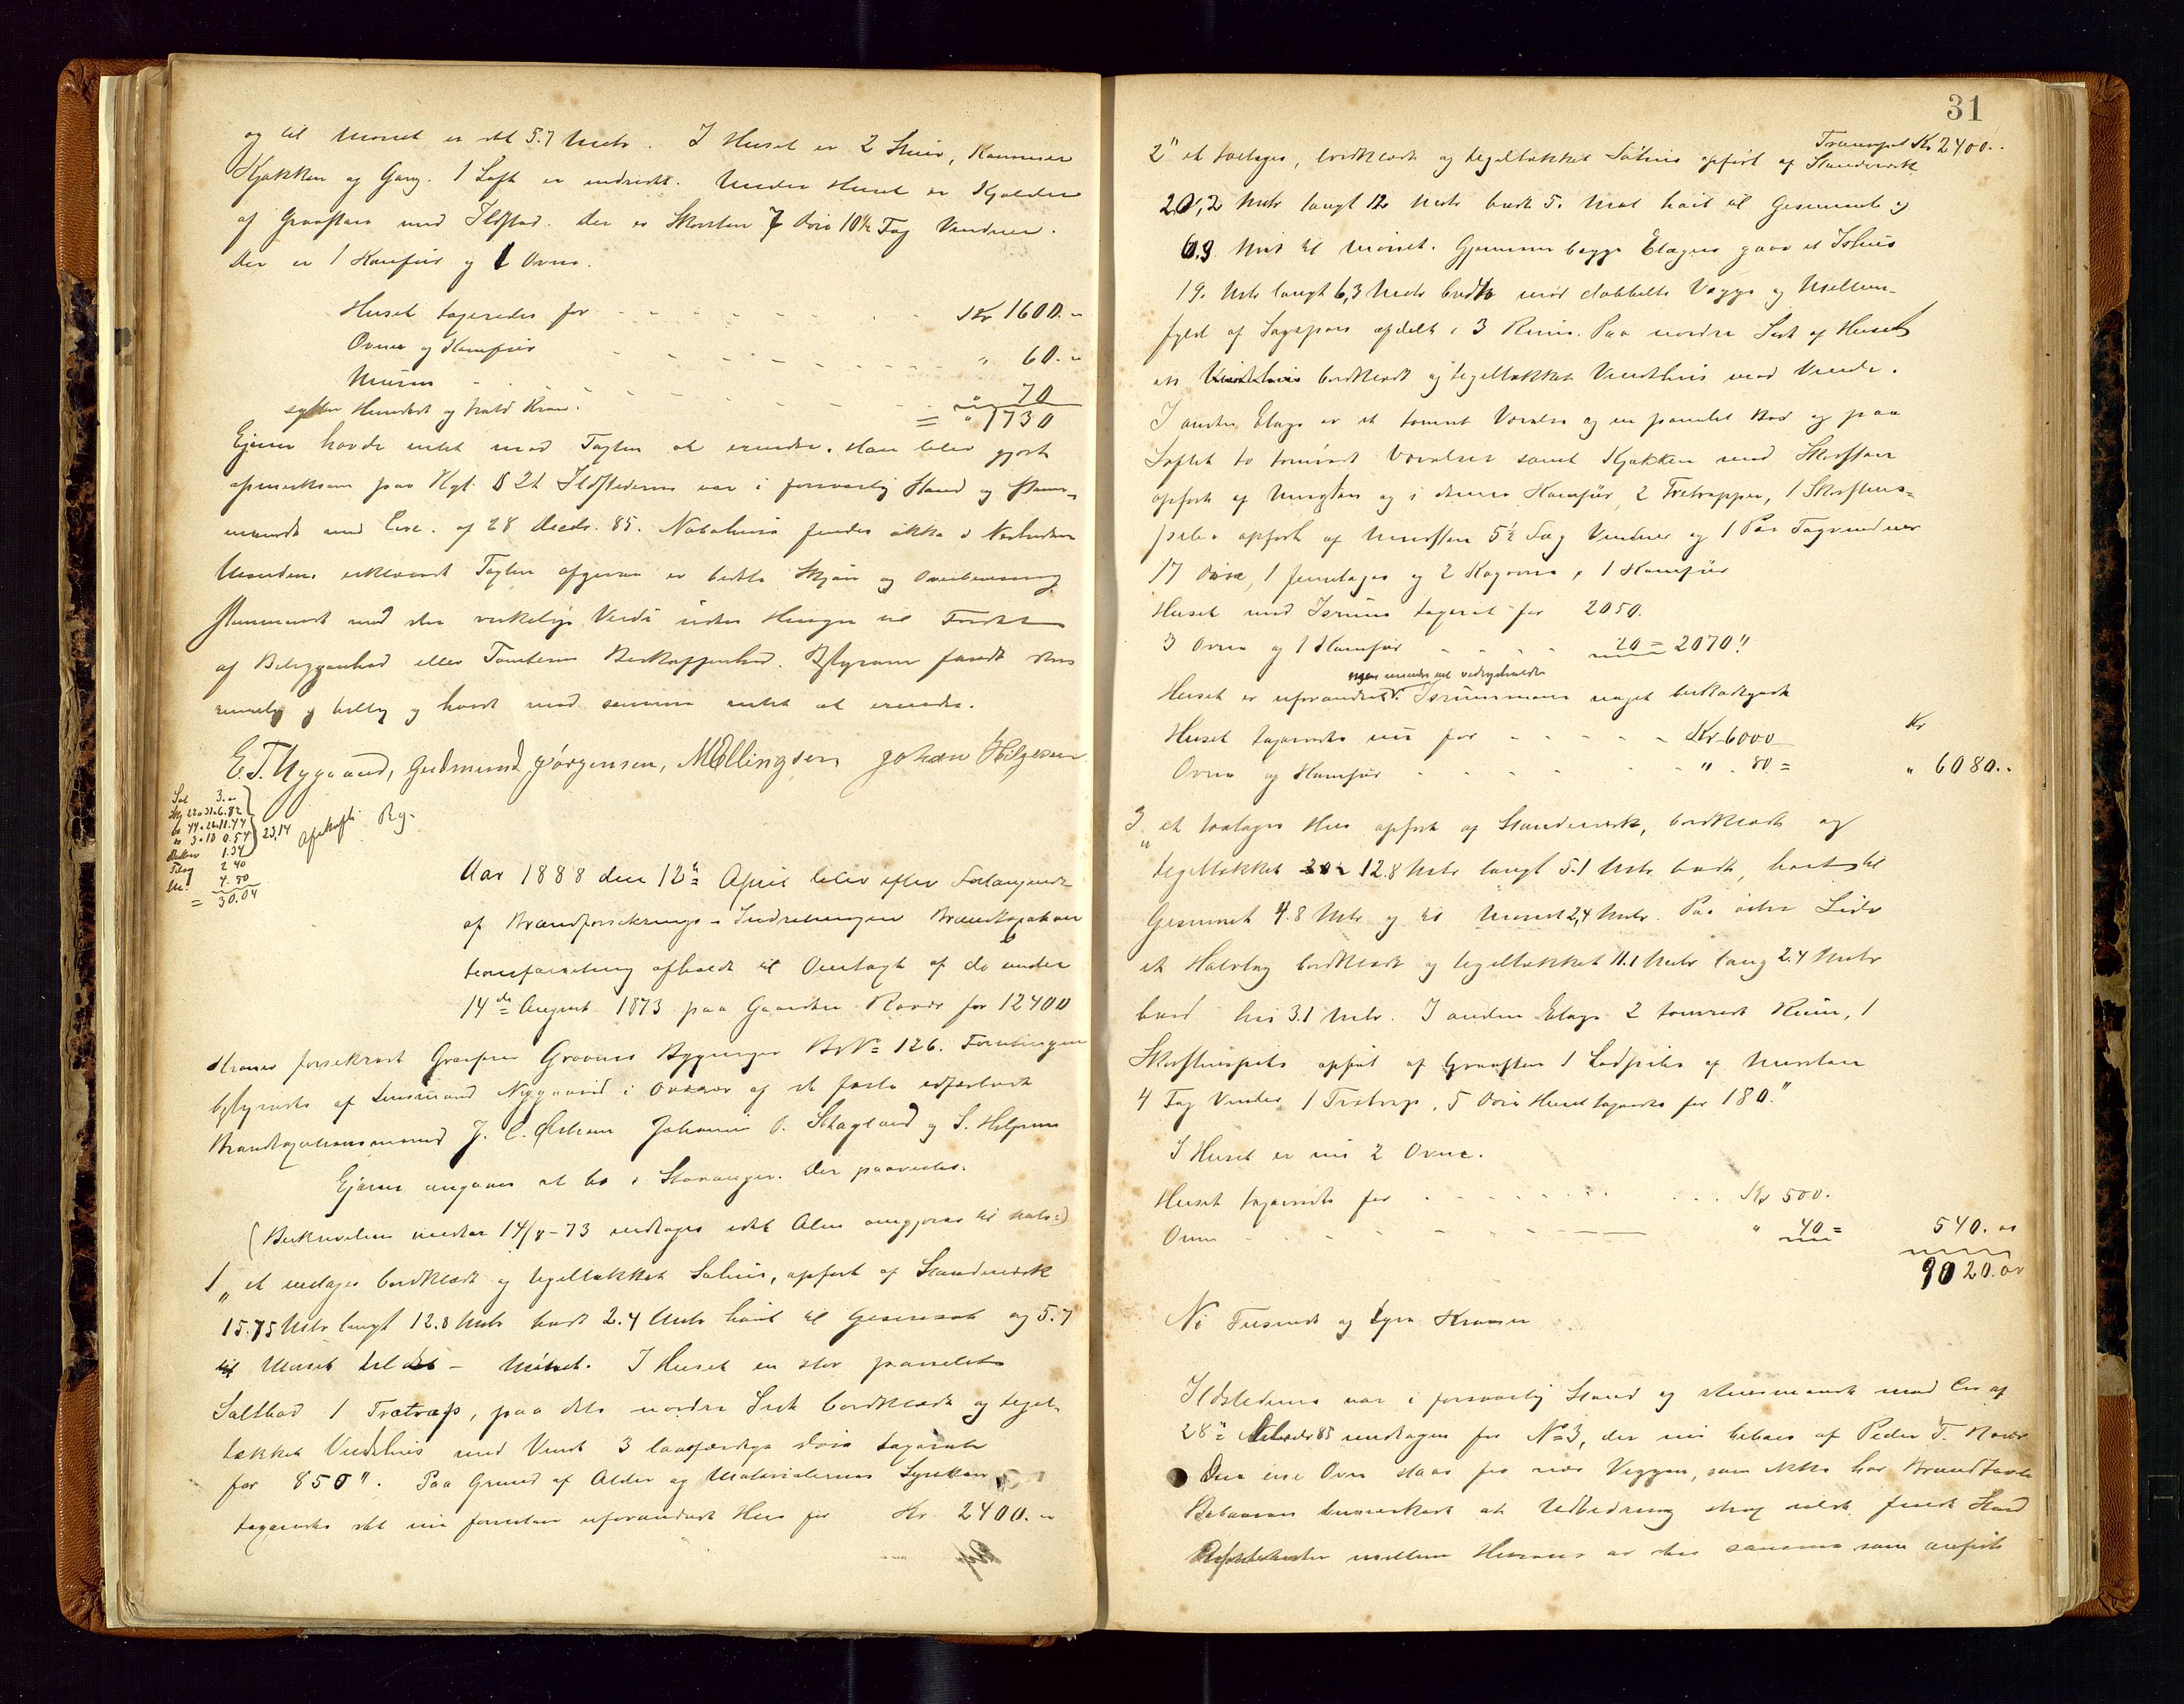 og til Mønet er det 5.7 Metr. I Huset er 2 Stuer, Kammer
Kjøkken og Gang. 1 Loft er indredt. Under Huset er Kjælder
af Graasten med Ildsted. Der er Skorsten 7 Døre 10½ Fag Vinduer.
Der er 1 Komfur og 1 Ovn.
Huset taxeredes for - - - - Kr 1600. "
Ovne og Komfur - - - - " 60. "
Muren - - - - " 70
sytten Hundrede og tredive Kroner. = " 1730
Ejeren havde intet mod Taxten at erindre. Han blev gjort
opmerksom paa Kgl. § 21 Ildstederne var i forsvarlig Stand og stem-
mende med Circ. af 28 Decbr. 85. Nabohuse findes ikke i Nærheden
Mændene erklærede Taxten afgiven er bedste Skjøn og Overbevisning
stemmende med den virkelige Værdi uden Hensyn til Fordel
af Beliggenhed eller Tomtens Beskaffenhed. Bestyreren fandt den
rimelig og billig og havde mod samme intet at erindre.
E. T. Nygaard, Gudmund Jørgensen, M Ellingsen Johan Helgesen
3. "
22 a 31 = 6.82
44 a 26 = 11.44
3 a 18 0.54 } 23,14
1.34
2 40
4. 80
= 30.04
Afskrift Rg.
Aar 1888 den 12te April blev efter Forlangende
af Brandforsikrings-Indretningen Brandtaxations
forretning afholdt til Omtaxt af de under
14de August 1873 paa Gaarden Røvær for 12400
Kroner forsikrede Bygninger BrNo 126. Forretningen
bestyredes af Lensmand Nygaard i Avaldsnes og de faste edfæstede
Brandtaxationsmænd J. C. Johannes O. Stagland og S. Helgesen
Ejeren angaves at bo i Stavanger. Der paavistes.
(Beskrivelsen under 14/8-73 indtages idet Alen omgjøres til Metr:)
1 " et enetages bordklædt og tegltækket Søhus, opført af Standerværk
15.75 Metr langt 12.8 Metr bredt 2.4 Metr høit til Gesimsen og 5.7
til Mønet. I Huset en stor panelet
Saltbod 1 Trætrap, paa dets nordre Side bordklædt og tegl-
tækket Vindehus med Vinde 3 laasfærdige Døre taxerede
for 850 ". Paa Grund af Alder og Materialernes
taxeredes det nu forresten uforandrede Hus for Kr 2400. "
31
Transport Kr 2400. "
2 " et toetages, bordklædt og tegltækket Søhus opført af Standerværk
20,2 Metr langt 12 Metr bredt 5. Metr høit til Gesimsen og
6.9 Metr til Mønet. Gjennem begge Etager gaar et Ishus
19. Metr langt 6,3 Metr bredt med dobbelte Vægge og Mellem-
fyld af Sagspon afdelt i 3 Rum. Paa nordre Side af Huset
et bordklædt og tegltækket Vindehus med Vinde.
I anden Etage er et tømret Værelse og en panelet Bod og paa
Loftet to tømrede Værelser samt Kjøkken med Skorsten
opført af Mursten og i denne Komfur, 2 Trætrapper, 1 Skorstens-
pibe opført af Mursten 5½ Fag Vinduer og 1 Par Tagvinduer
17 Døre, 1 femetages og 2 Kogovne, 1 Komfur
Huset med Isrum taxeret for 2050.
3 Ovne og 1 Komfur - - - - 20 = 2070 "
Huset er uforandret. Isrummene noget beskadigede
men vedligeholdte
Huset taxeredes nu for - - - - Kr 6000 Kr
Ovne og Komfur - - - - " 80 = " 6080. "
3 " et toetages Hus opført af Standerværk, bordklædt og
tegltækket 12.8 Metr langt 5.1 Metr bredt, høit til
Gesimset 4.8 Metr og til Mønet 2,4 Metr. Paa østre Side
et Halvtag bordklædt og tegltækket 11.1 Metr lang 2.4 Metr
bred høi 3.1 Metr. I anden Etage 2 tømrede Rum, 1
Skorstenspibe opført af Graasten 1 Lodpibe af Mursten
4 Fag Vinduer 1 Trætrap, 5 Døre Huset taxeredes for 180. "
I Huset er nu 2 Ovne.
Huset taxeredes for - - - - Kr 500.
Ovne - - - - " 40 = 540. oo
9020. oo
Ni Tusinde og tyve Kroner
Ildstederne var i forsvarlig Stand og stemmende med Circ af
28de Decbr 85 undtagen for No 3, der nu beboes af Peder T. Røvær
Den ene Ovn staar for nær Væggen, som ikke har Brandtavle
Beboeren bemerkede at Udbedring strax vilde finde Sted
Afstanden mellem Husene er den samme som anført